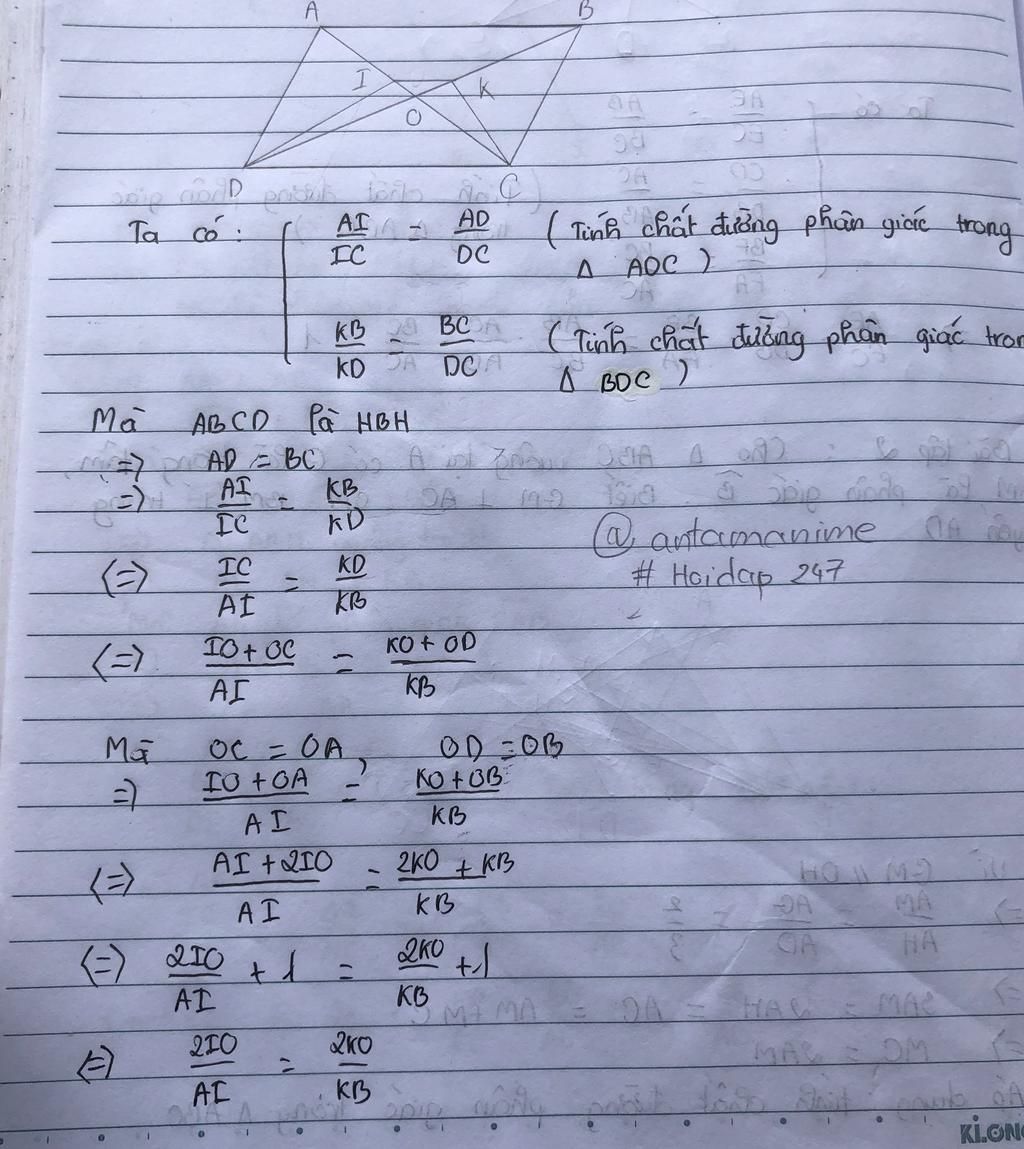 A B
I K
O
D C
Ta có : AI/IC = AD/DC (Tính chất đường phân giác trong
Δ ADC)
KB/KD = BC/DC (Tính chất đường phân giác tron
Δ BDC)
Mà ABCD là HBH
=> AD = BC
=> AI/IC = KB/KD
<=> IC/AI = KD/KB
@ antamanime
# Hoidap 247
<=> IO + OC/AI = KO + OD/KB
Mà OC = OA, OD = OB
=> IO + OA/AI = KO + OB/KB
<=> AI + 2IO/AI = 2KO + KB/KB
<=> 2IO/AI + 1 = 2KO/KB + 1
<=> 2IO/AI = 2KO/KB
KLONG